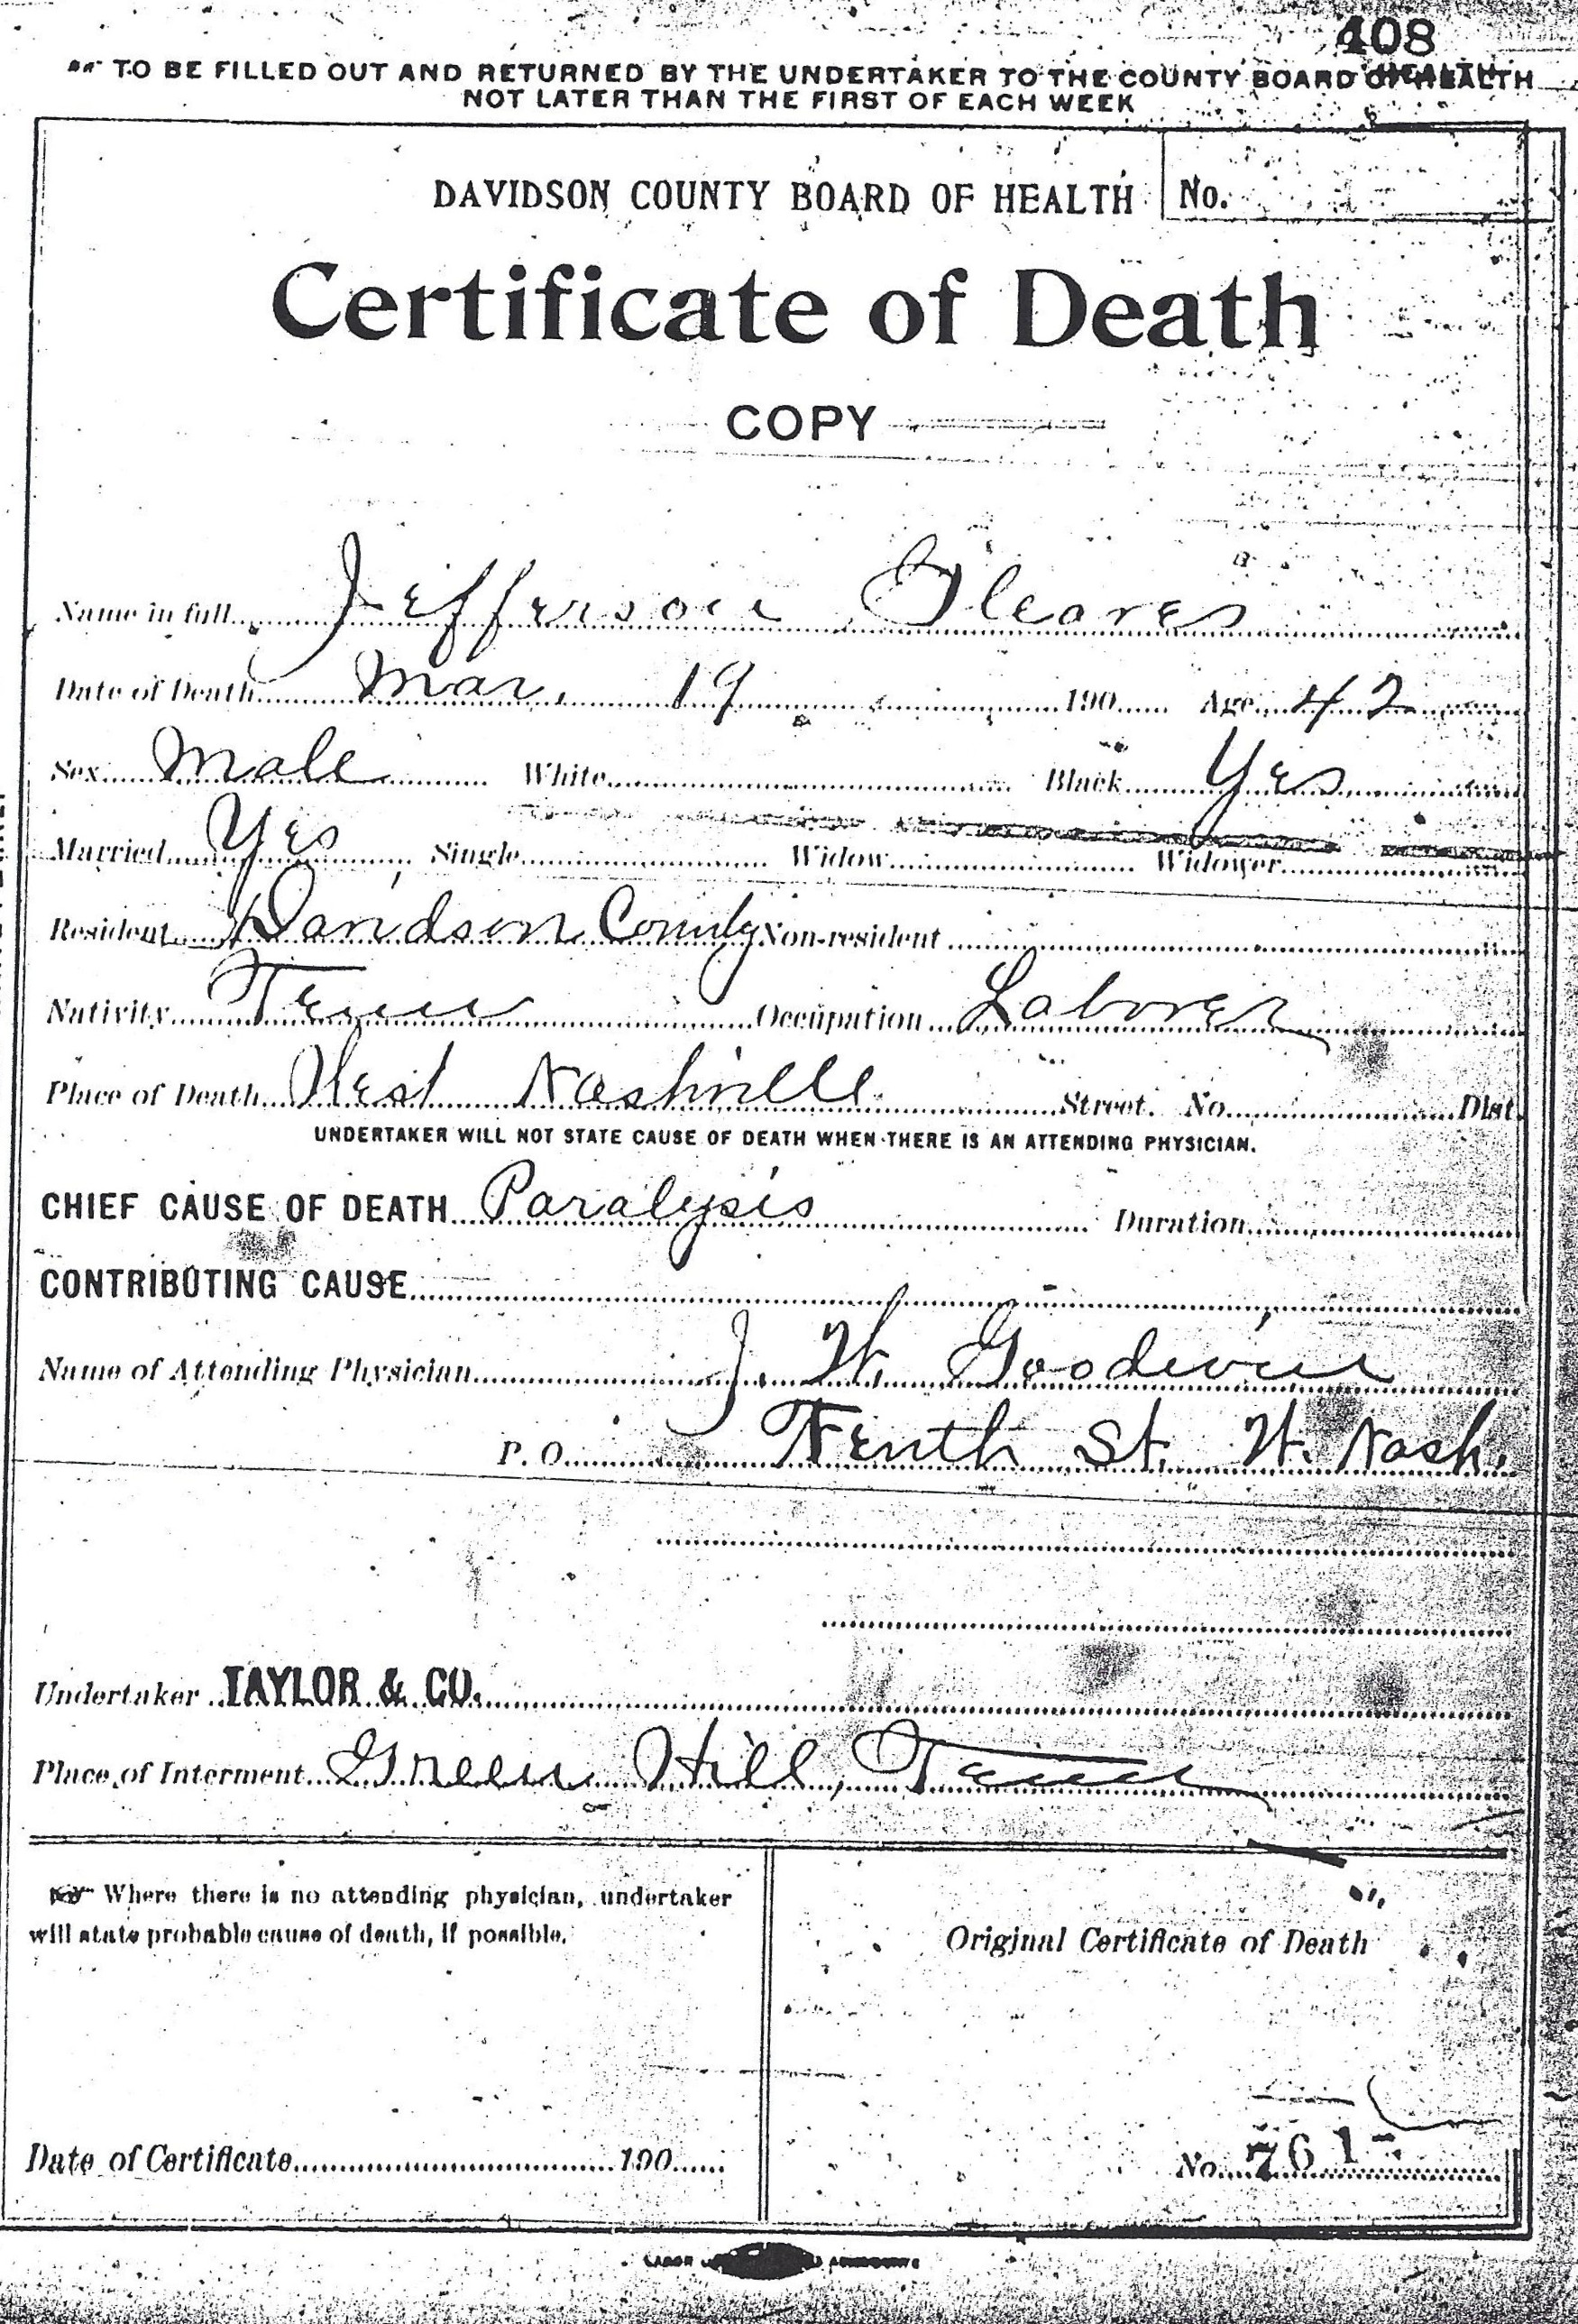 408
TO BE FILLED OUT AND RETURNED BY THE UNDERTAKER TO THE COUNTY BOARD OF HEALTH
NOT LATER THAN THE FIRST OF EACH WEEK
DAVIDSON COUNTY BOARD OF HEALTH No.
Certificate of Death
COPY
Name in full Jefferson Gleaves
Date of Death Mar. 19 190 Age 42
Sex Male White Black Yes
Married Yes, Single Widow Widower
Resident Davidson County Non-resident
Nativity Tenn Occupation Laborer
Place of Death West Nashville Street. No. Dist.
UNDERTAKER WILL NOT STATE CAUSE OF DEATH WHEN THERE IS AN ATTENDING PHYSICIAN.
CHIEF CAUSE OF DEATH Paralysis Duration
CONTRIBUTING CAUSE
Name of Attending Physician J. W. Goodwin
P. O. Tenth St. W. Nash.
Undertaker TAYLOR & CO.
Place of Interment Green Hill, Tenn
Where there is no attending physician, undertaker
will state probable cause of death, if possible.
Original Certificate of Death
Date of Certificate 190
No. 761